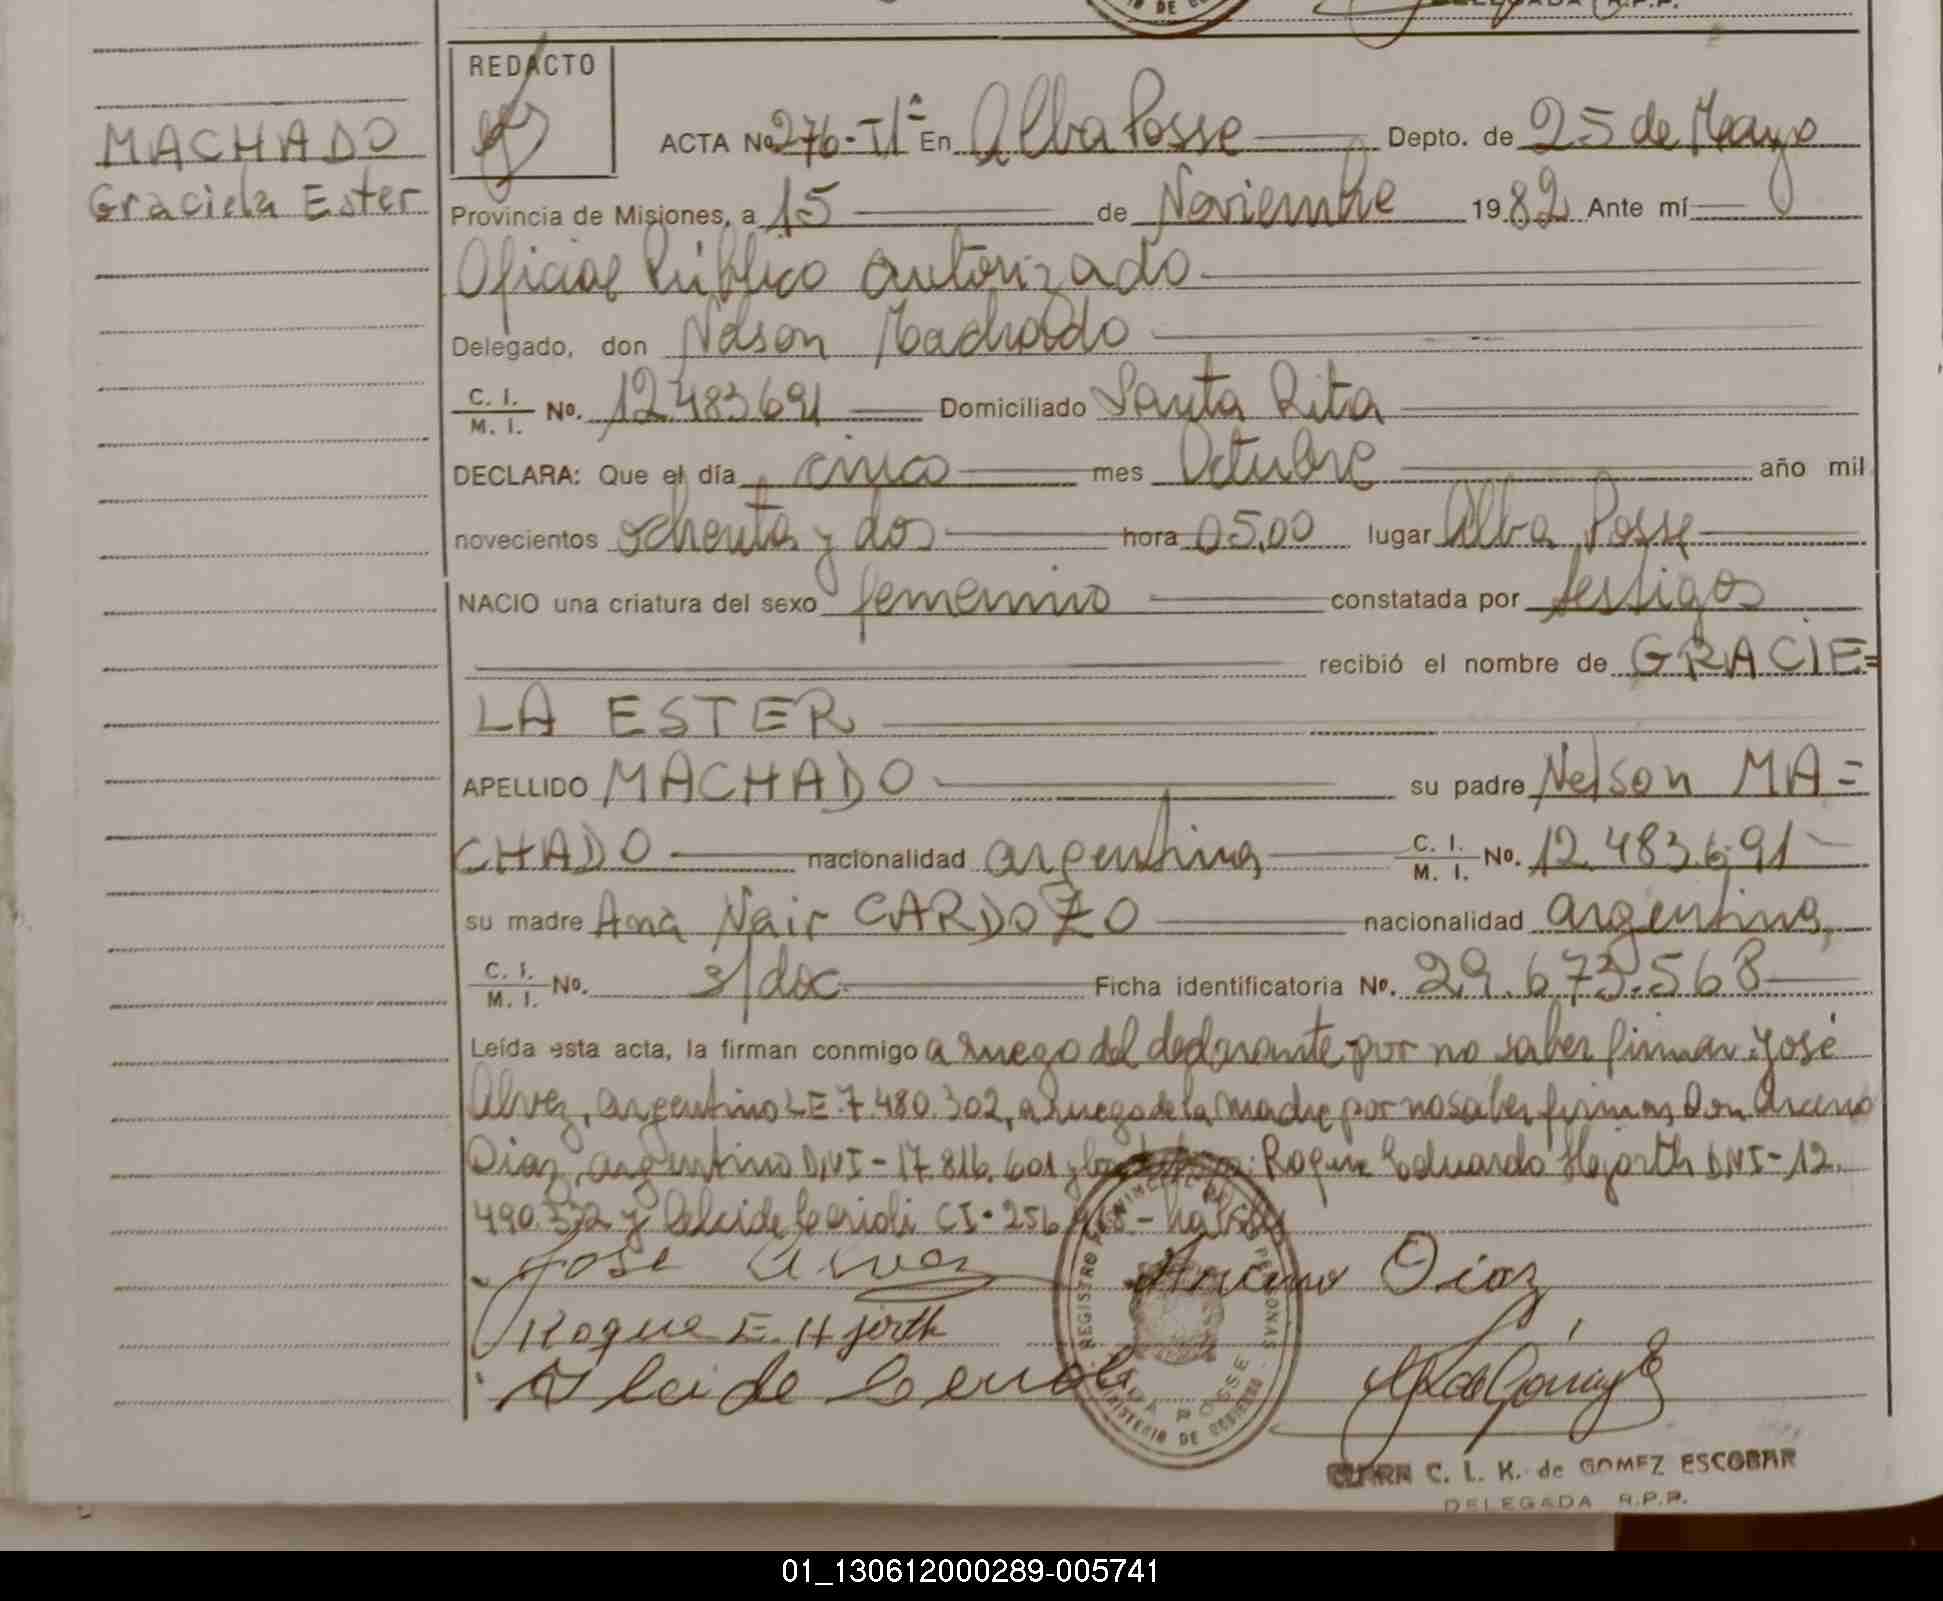 DE
DELEGADA R.P.P.
REDACTO
MACHADO
Graciela Ester
ACTA No 276-T1ª En Alba Posse Depto. de 25 de Mayo
Provincia de Misiones, a 15 de Noviembre 1982 Ante mí
Oficial Público autorizado
Delegado, don Nelson Machado
C. I. M. I. No. 12.483.691 Domiciliado Santa Rita
DECLARA: Que el día cinco mes Octubre año mil
novecientos ochenta y dos hora 05,00 lugar Alba Posse
NACIO una criatura del sexo femenino constatada por testigos
recibió el nombre de GRACIE=
LA ESTER
APELLIDO MACHADO su padre Nelson MA=
CHADO nacionalidad argentina C. I. M. I. No. 12.483.691
su madre Ana Nair CARDOZO nacionalidad argentina,
C. I. M. I. No. s/doc. Ficha identificatoria No. 29.673.568
Leída esta acta, la firman conmigo a ruego del declarante por no saber firmar: José
Alvez, argentino LE 7.480.302, a ruego de la madre por no saber firmar, Don
Diaz, argentino DNI-17.816.601 y Roque Eduardo Hjorth DNI-12.
490.372 y CI-256
Jose Alvez Diaz
Roque E. Hjorth
Alcide
REGISTRO PROVINCIAL DE PERSONAS
ALBA POSSE
MINISTERIO DE GOBIERNO
CLARA C. L. K. de GOMEZ ESCOBAR
DELEGADA R.P.P.
01_130612000289-005741